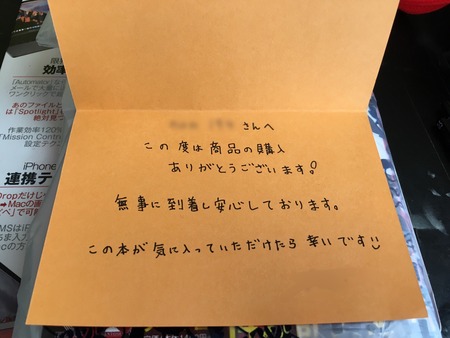 さんへ
この度は商品の購入
ありがとうございます!
無事に到着し安心しております。
この本が気に入っていただけたら幸いです
効率
「Automator」な
メールで大量に
ワンクリックで
あのファイルと
は「Spotlight」
絶対見つ
作業効率120%
「Mission Contr
設定テク
iPhone
連携テ
Dropだけじ
Macの画
で可能